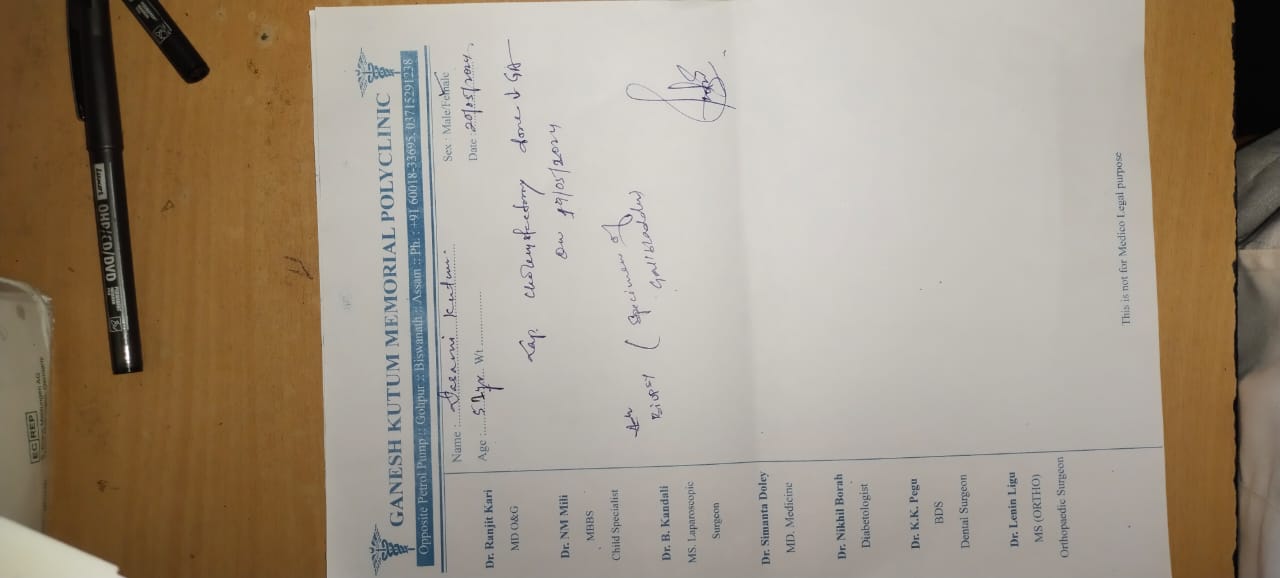 GANESH KUTUM MEMORIAL POLYCLINIC
Opposite Petrol Pump :: Gohpur :: Biswanath :: Assam :: Ph. : +91 60018-33695, 03715291238
Name : Kutum.
Sex : Male/Female
Age : Wt
Date : 20/05/2024
Lap. Cholecystectomy done ↓ GA
on 19/05/2024
Biopsy ( Specimen of
Gallbladder)
Dr. Ranjit Kari
MD O&G
Dr. NM Mili
MBBS
Child Specialist
Dr. B. Kandali
MS. Laparoscopic
Surgeon
Dr. Simanta Doley
MD. Medicine
Dr. Nikhil Borah
Diabetologist
Dr. K.K. Pegu
BDS
Dental Surgeon
Dr. Lenin Ligu
MS (ORTHO)
Orthopaedic Surgeon
This is not for Medico Legal purpose
OHP/CD/DVD
EC REP